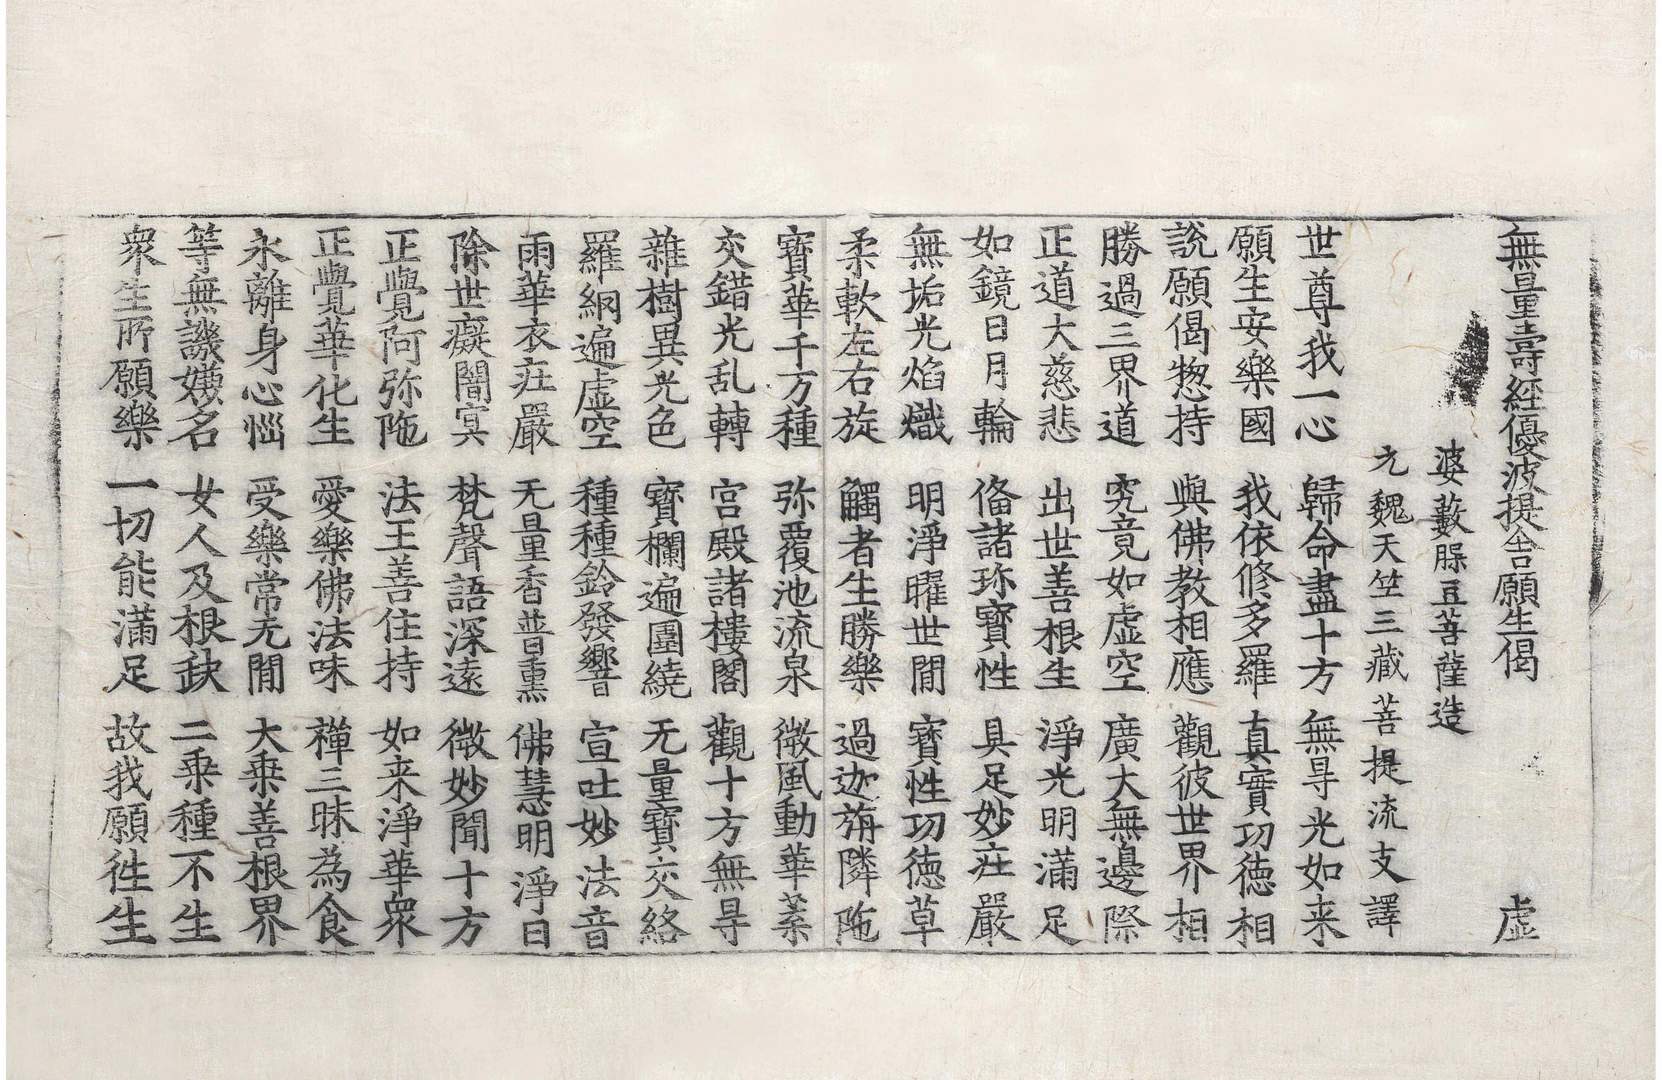 無量壽經優波提舍願生偈 虛
婆藪槃豆菩薩造
元魏天竺三藏菩提流支譯
世尊我一心 歸命盡十方 無㝵光如来
願生安樂國 我依修多羅 真實功徳相
説願偈揔持 與佛教相應 觀彼世界相
勝過三界道 究竟如虛空 廣大無邊際
正道大慈悲 出世善根生 淨光明滿足
如鏡日月輪 俻諸珎寶性 具足妙莊嚴
無垢光焰熾 明淨曜世閒 寶性功徳草
柔軟左右旋 觸者生勝樂 過迦旃隣陁
寶華千万種 弥覆池流泉 微風動華葉
交錯光乱轉 宫殿諸樓閣 觀十方無㝵
雜樹異光色 寶欄遍圍繞 无量寶交絡
羅網遍虛空 種種鈴發響 宣吐妙法音
雨華衣莊嚴 无量香普熏 佛慧明淨日
除世癡闇冥 梵聲語深遠 微妙聞十方
正覺阿弥陁 法王善住持 如来淨華衆
正覺華化生 愛樂佛法味 禪三昧為食
永離身心惱 受樂常无閒 大乗善根界
等無譏嫌名 女人及根缺 二乗種不生
衆生所願樂 一切能滿足 故我願徃生